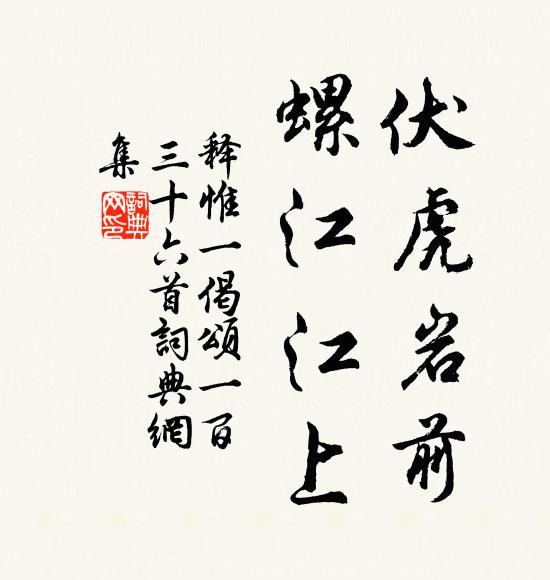 伏虎岩前
螺江江上
释惟一偈頌一百
三十六首詞典網
集
詞典网印